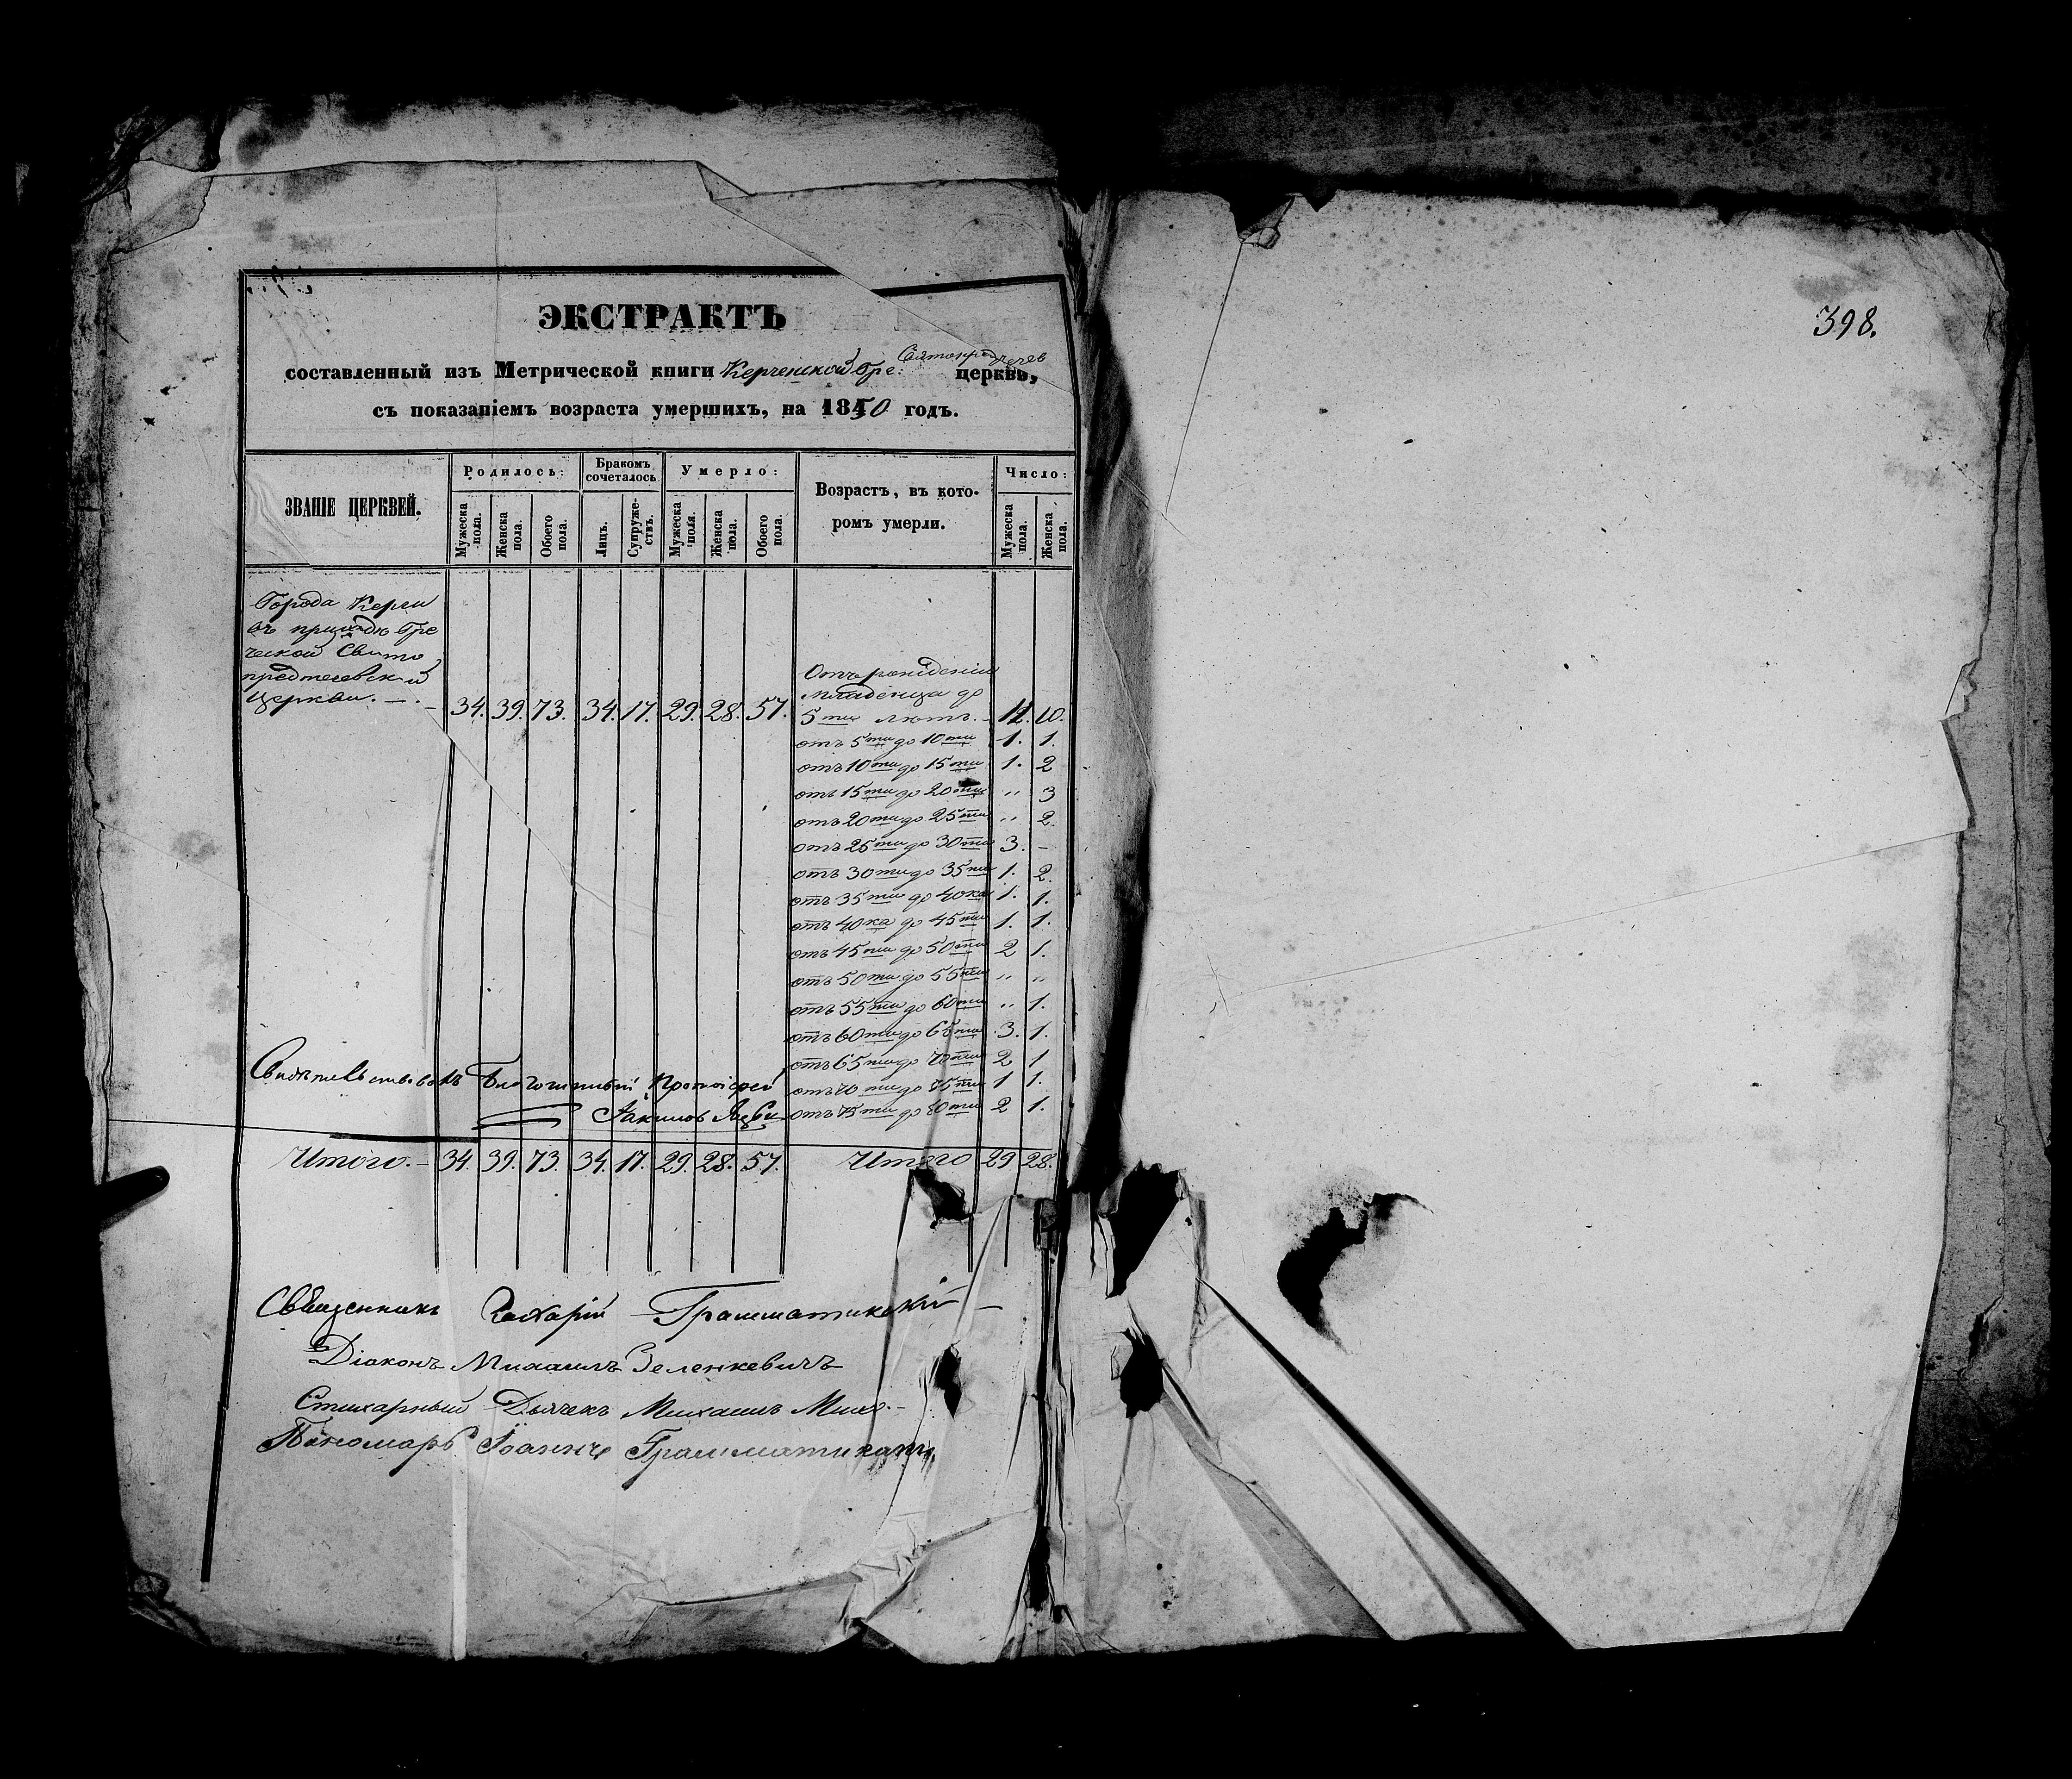 398.
ЭКСТРАКТЪ
Святопредтечев
составленный изъ Метрической книги Керченской Гре. церкви,
съ показаніемъ возраста умершихъ, на 1850 годъ.
ЗВАНІЕ ЦЕРКВЕЙ. Родилось: Бракомъ сочеталось Умерло: Возрастъ, въ которомъ умерли. Число:
Мужеска пола. Женска пола. Обоего пола. Лицъ. Супружествъ. Мужеска пола. Женска пола. Обоего пола. Мужеска пола. Женска пола.
Города Керчи
въ приходѣ Гре
ческой Свято
предтечевской
Церкви. — . — 34. 39. 73. 34. 17. 29. 28. 57.
Отъ рожденія
младенца до
5ти лѣтъ. — 11. 10.
отъ 5ти до 10ти 1. 1.
отъ 10ти до 15ти 1. 2
отъ 15ти до 20ти " 3
отъ 20ти до 25ти " 2.
отъ 25ти до 30ти 3. -
отъ 30ти до 35ти 1. 2.
отъ 35ти до 40ка 1. 1.
отъ 40ка до 45ти 1. 1.
отъ 45ти до 50ти 2 1.
отъ 50ти до 55ти " "
отъ 55ти до 60ти " 1.
отъ 60ти до 65ти 3. 1.
отъ 65ти до 70ти 2 1
отъ 70ти до 75ти 1 1.
отъ 75ти до 80ти 2 1.
Свидѣтельствовалъ Благочинный Протоіерей
Итого. — 34. 39. 73. 34. 17. 29. 28. 57. Итого 29 28.
Священникъ Захарій Грамматиксkій —
Діаконъ Михаилъ Зеленкевичъ
Стихарный Дьячекъ Михаилъ
Пономарь Іоаннъ Грамматикати